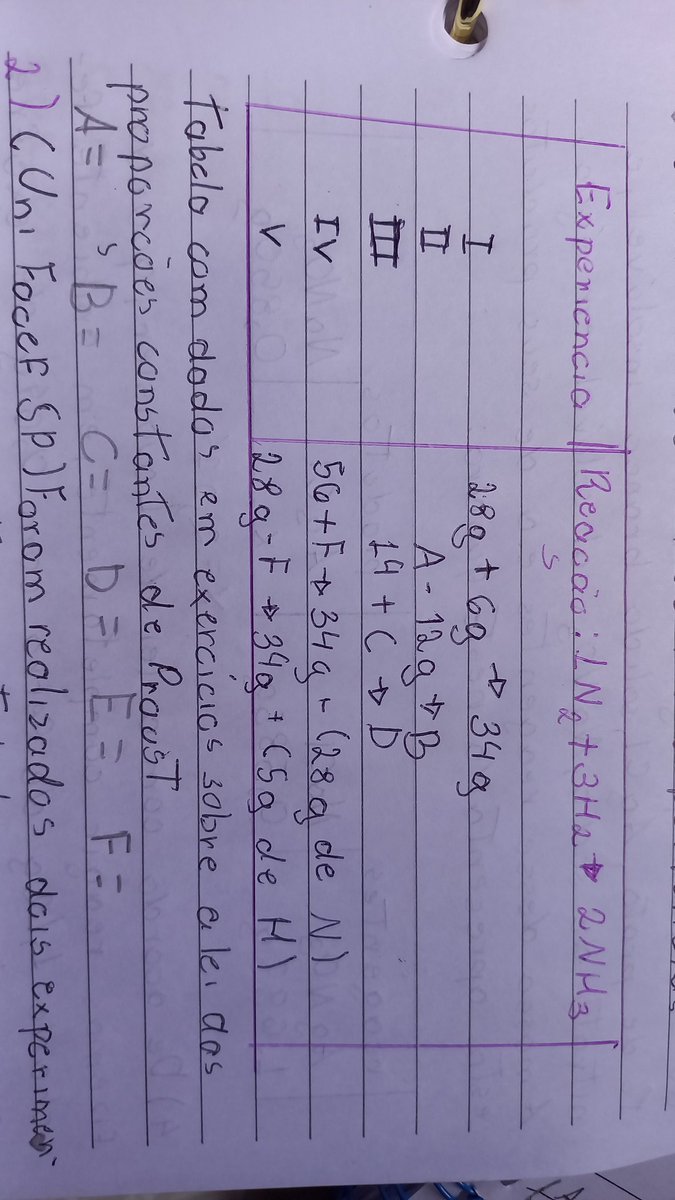 Experiencia Reação: 1N2 + 3H2 → 2NH3
I 28g + 6g → 34g
II A - 12g → B
III 14 + C → D
IV 56 + F → 34g + (28g de N)
V 28g - F → 34g + (5g de H)
tabela com dados em exercícios sobre a lei das
proporções constantes de Proust
A= B= C= D= E= F=
2) (Uni Facef SP) Foram realizados dois experimen-